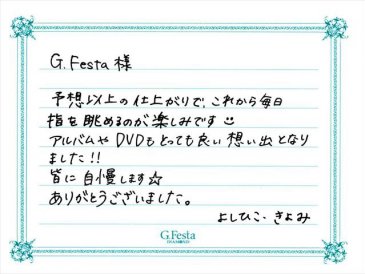 G.Festa 様
予想以上の仕上がりで、これから毎日
指を眺めるのが楽しみです
アルバムや DVDもとっても良い想い出となり
ました!!
皆に自慢します☆
ありがとうございました。
よしひこ・きよみ
G.Festa
DIAMOND